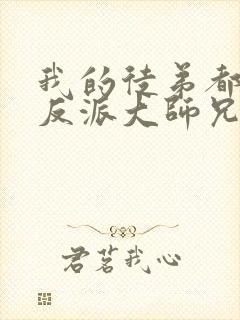 我的徒弟都
反派大師兄
君茗我心